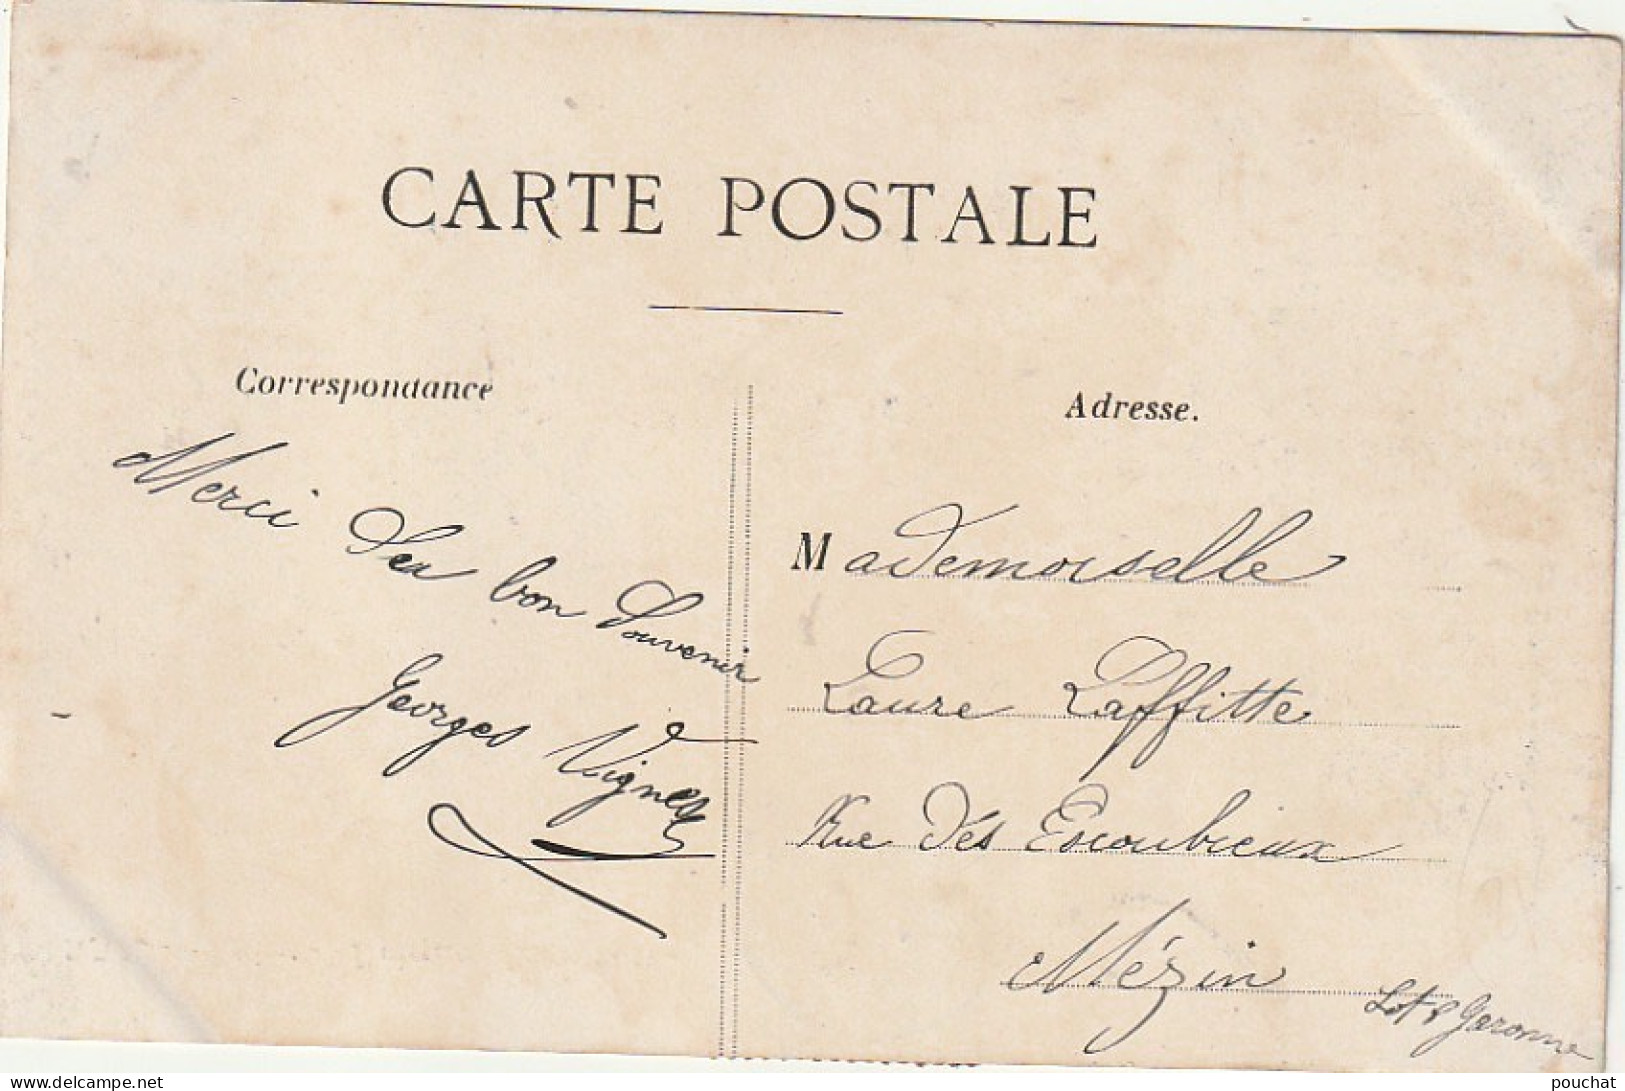 CARTE POSTALE
Correspondance
Merci bon Souvenir
Georges Vignes
Adresse.
Mademoiselle
Laure Laffitte
Rue des Escoubieux
Mézin Lot & Garonne
delcampe.net
pouchat